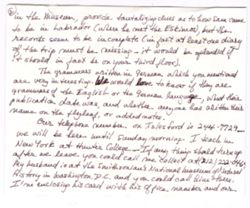 in the Museum, provide tantalizing clues as to how Sam came
to be in Labrador (where he met the Eskimos) but the
records seem to be incomplete (in fact at least one diary
of the trip must be missing – it would be splendid if
it should in fact be on your third floor).
The grammars written in German which you mentioned
are very interesting. We would to know if they are
grammars of the English or the German language, what their
publication dates was, and whether anyone has written their
names on the flyleaf, or added notes.
Our telephone number on is 246-7729
we will be here until Sunday morning. I teach in
New York at Hunter College. If any thing should turn up
after we leave you could call me collect at 212/222-
My husband is at the Smithsonian's National Museum of Natural
History in Washington, D.C. and you could call him there.
I'm enclosing his card with his office number and our